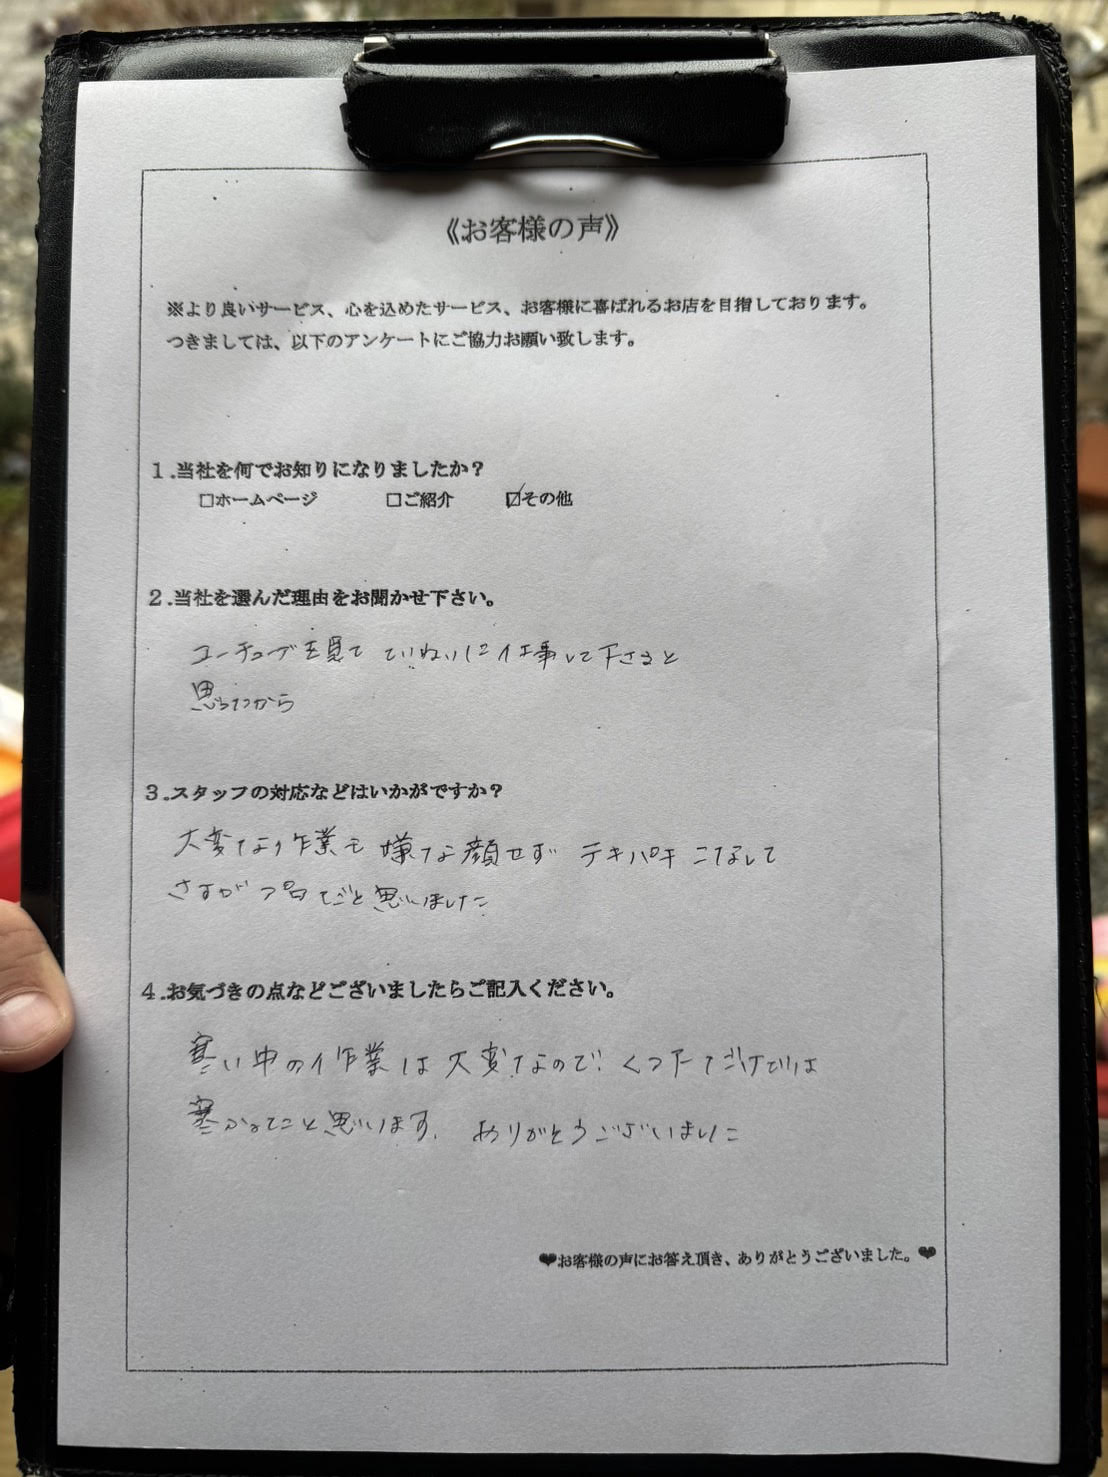 《お客様の声》
※より良いサービス、心を込めたサービス、お客様に喜ばれるお店を目指しております。
つきましては、以下のアンケートにご協力お願い致します。
１.当社を何でお知りになりましたか？
☐ホームページ ☐ご紹介 ☑その他
２.当社を選んだ理由をお聞かせ下さい。
ユーチューブを見て ていねいに仕事して下さると
思ったから
３.スタッフの対応などはいかがですか？
大変な作業も 嫌な顔せず テキパキ こなして
さすが プロだと思いました
４.お気づきの点などございましたらご記入ください。
寒い中の作業は大変なので、くつ下だけでは
寒かったと思います。 ありがとうございました
❤お客様の声にお答え頂き、ありがとうございました。❤